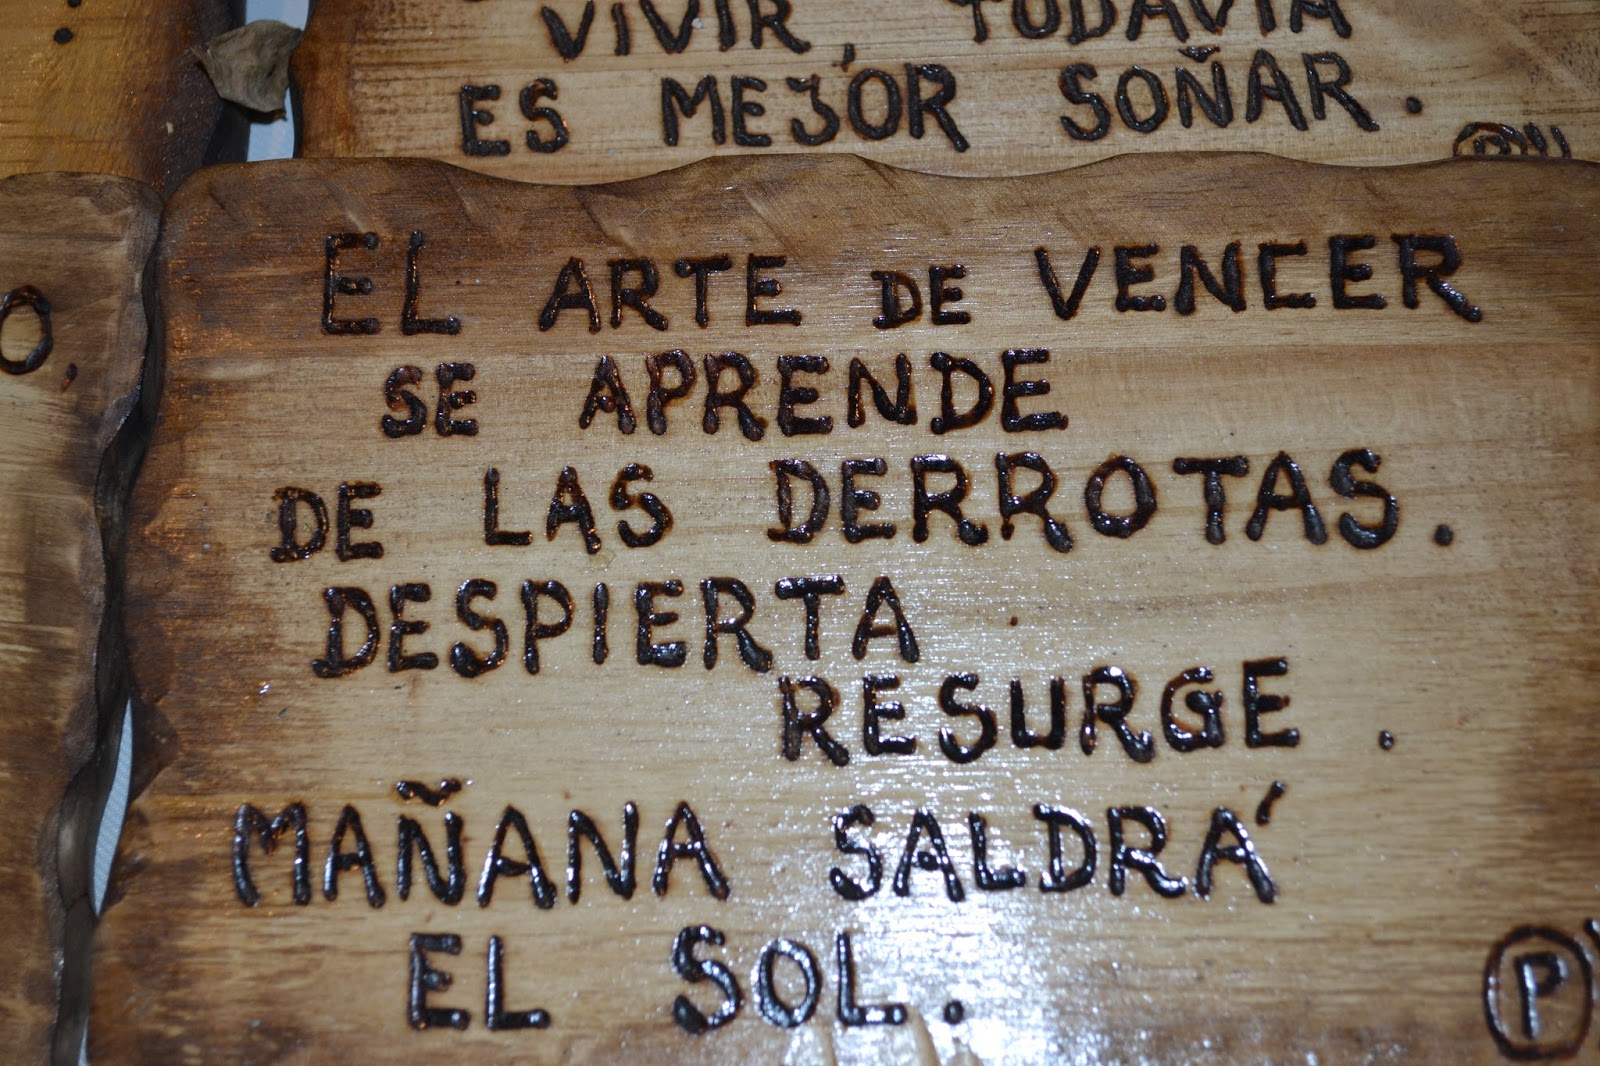 VIVIR, TODAVÍA
ES MEJOR SOÑAR.
O,
EL ARTE DE VENCER
SE APRENDE
DE LAS DERROTAS.
DESPIERTA
RESURGE.
MAÑANA SALDRÁ
EL SOL.
P